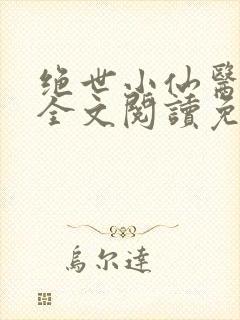 绝世小仙醫
全文閱讀免
烏尔達